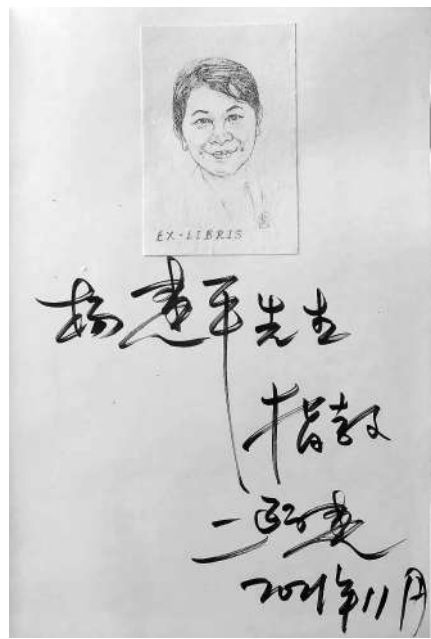 EX-LIBRIS
杨建平先生
指教
2021年11月